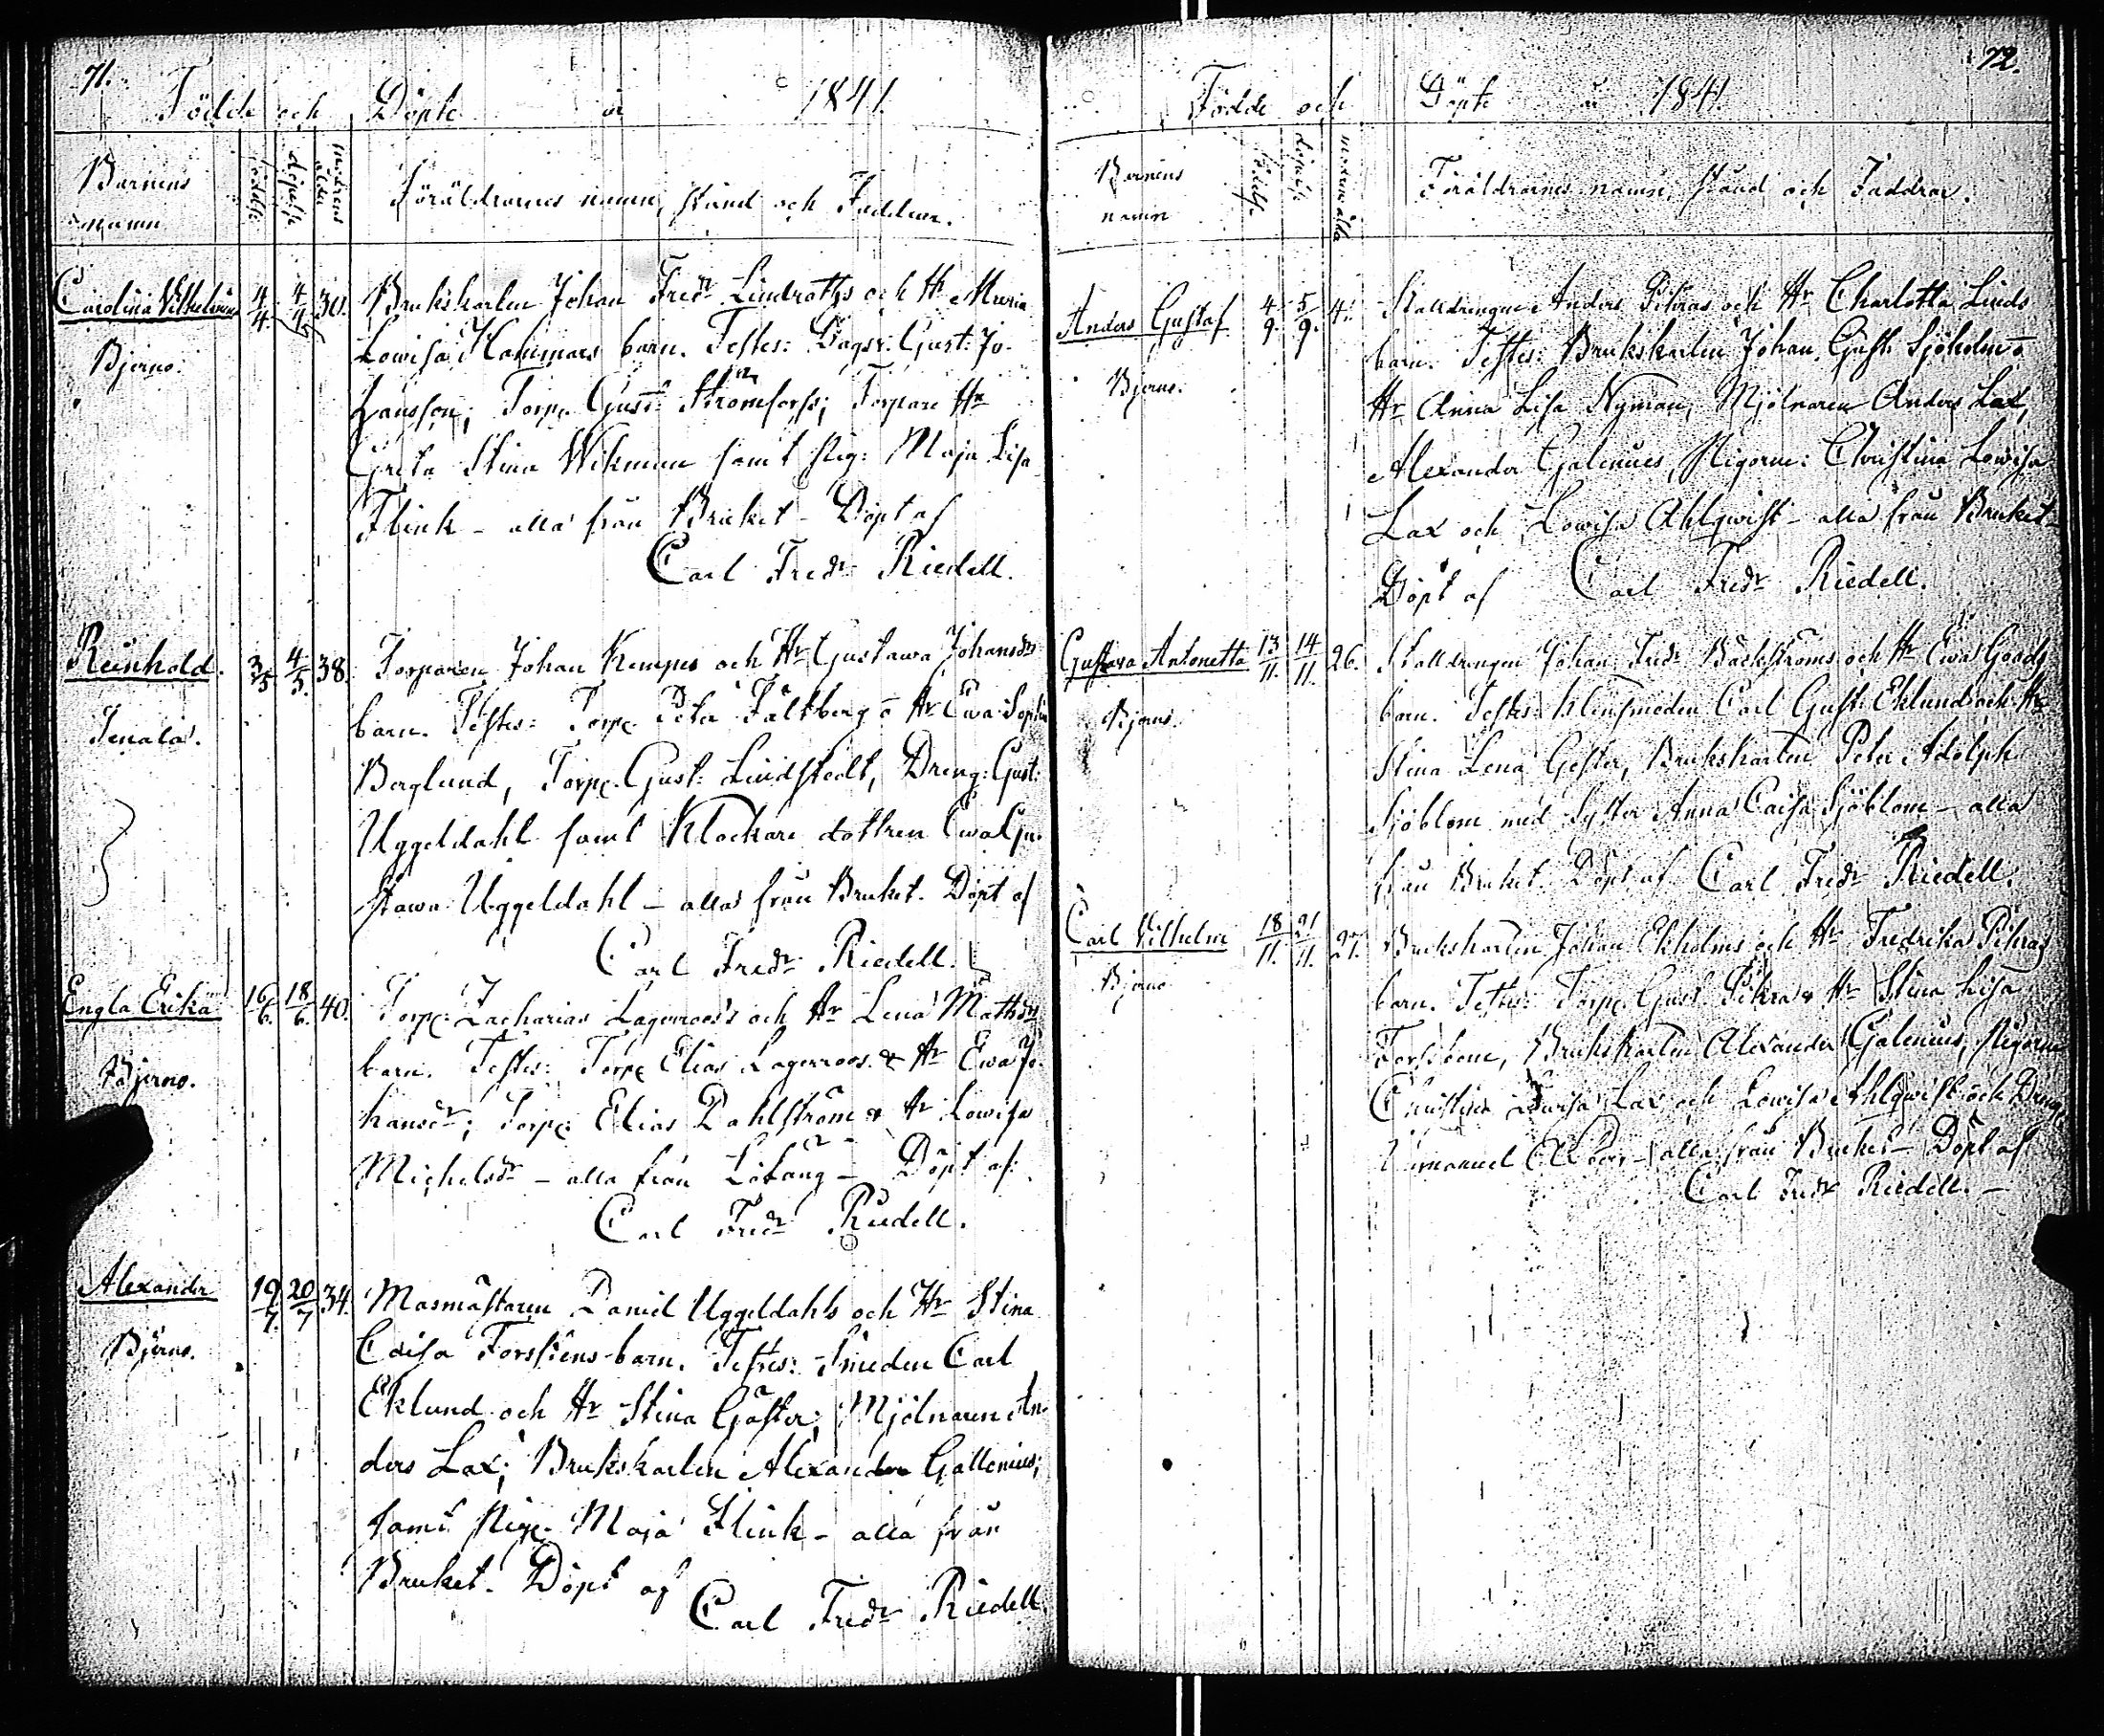 71.
Födde och Döpte år 1841.
Barnens
namn
födelse
döpelse
modrens
ålder
Föräldrarnes namn, stånd och Faddrar.
Carolina Vilhelmina 4/4. 4/4 30. Brukskarlen Johan Fredr Lindroths och Hr Maria
Bjerno.
Lowisa Hammars barn. Testes: Dagsv: Gust: Jo-
hansson; Torp. Gust: Strömfors; Torpare Hr
Greta Stina Wikman samt Pig: Maja Lisa
Flink – alla från Bruket – Döpt af
Carl Fredr Riedell.
Reinhold. 3/5 4/5. 38. Torparen Johan Kempes och Hr Gustawa Johansdr
Tenala.
barn. Testes: Torp. Peter Fältberg o Hr Ewa Sophia
Berglund, Torp. Gust: Lindstedt, Dreng: Gust:
Uggeldahl samt Klockare dottren Ewa Gu-
stawa Uggeldahl – alla från Bruket. Döpt af
Carl Fredr Riedell.
Engla Erika 16/6. 18/6. 40. Torp: Zacharias Lagerroos's och Hr Lena Mathsdr
Bjerno.
barn. Testes: Torp. Elias Lagerroos & Hr Ewa Jo-
hansdr; Torp. Elias Dahlström & Hr Lowisa
Michelsdr – alla från – Döpt af:
Carl Fredr Riedell.
Alexander 19/7. 20/7 34. Masmästaren Daniel Uggeldahls och Hr Stina
Bjerno.
Caisa Forsstens barn. Testes: Smeden Carl
Eklund och Hr Stina Gäster; Mjölnaren An-
ders Lax; Brukskarlen Alexander Gallenius;
samt Pig. Maja Flink – alla från
Bruket. Döpt af
Carl Fredr Riedell.
72.
Födde och Döpte år 1841.
Barnens
namn
födelse
döpelse
modrens ålder
Föräldrarnes namn, stånd och Faddrar.
Anders Gustaf 4/9. 5/9. Stalldrengen Anders Pihras och Hr Charlotta Linds
Bjerno.
barn. Testes: Brukskarlen Johan Gust: Sjöholm o
Hr Anna Lisa Nyman, Mjölnaren Anders Lax,
Alexander Galenius, Pigorne: Christina Lowisa
Lax och Lowisa Ahlqwist – alla från Bruket –
Döpt af Carl Fredr Riedell.
Gustava Antonetta 13/11. 14/11. 26. Stalldrengen Johan Fredr Bäckströms och Hr Ewa Goods
Bjerno.
barn. Testes: Klensmeden Carl Gust: Eklund och Hr
Stina Lena Gester, Brukskarlen Peter Adolph
Sjöblom med Syster Anna Caisa Sjöblom – alla
från Bruket. Döpt af Carl Fredr Riedell.
Carl Vilhelm 18/11. 21/11. 27. Brukskarlen Johan Ekholms och Hr Fredrika Pihras
Bjerno
barn. Testes: Torp. Gust. Pihra & Hr Stina Lisa
Forsbom, Brukskarlen Alexander Galenius, Pigorna
Christina Lowisa Lax och Lowisa Ahlqwist och Dreng.
– alla från Bruket – Döpt af
Carl Fredr Riedell. –